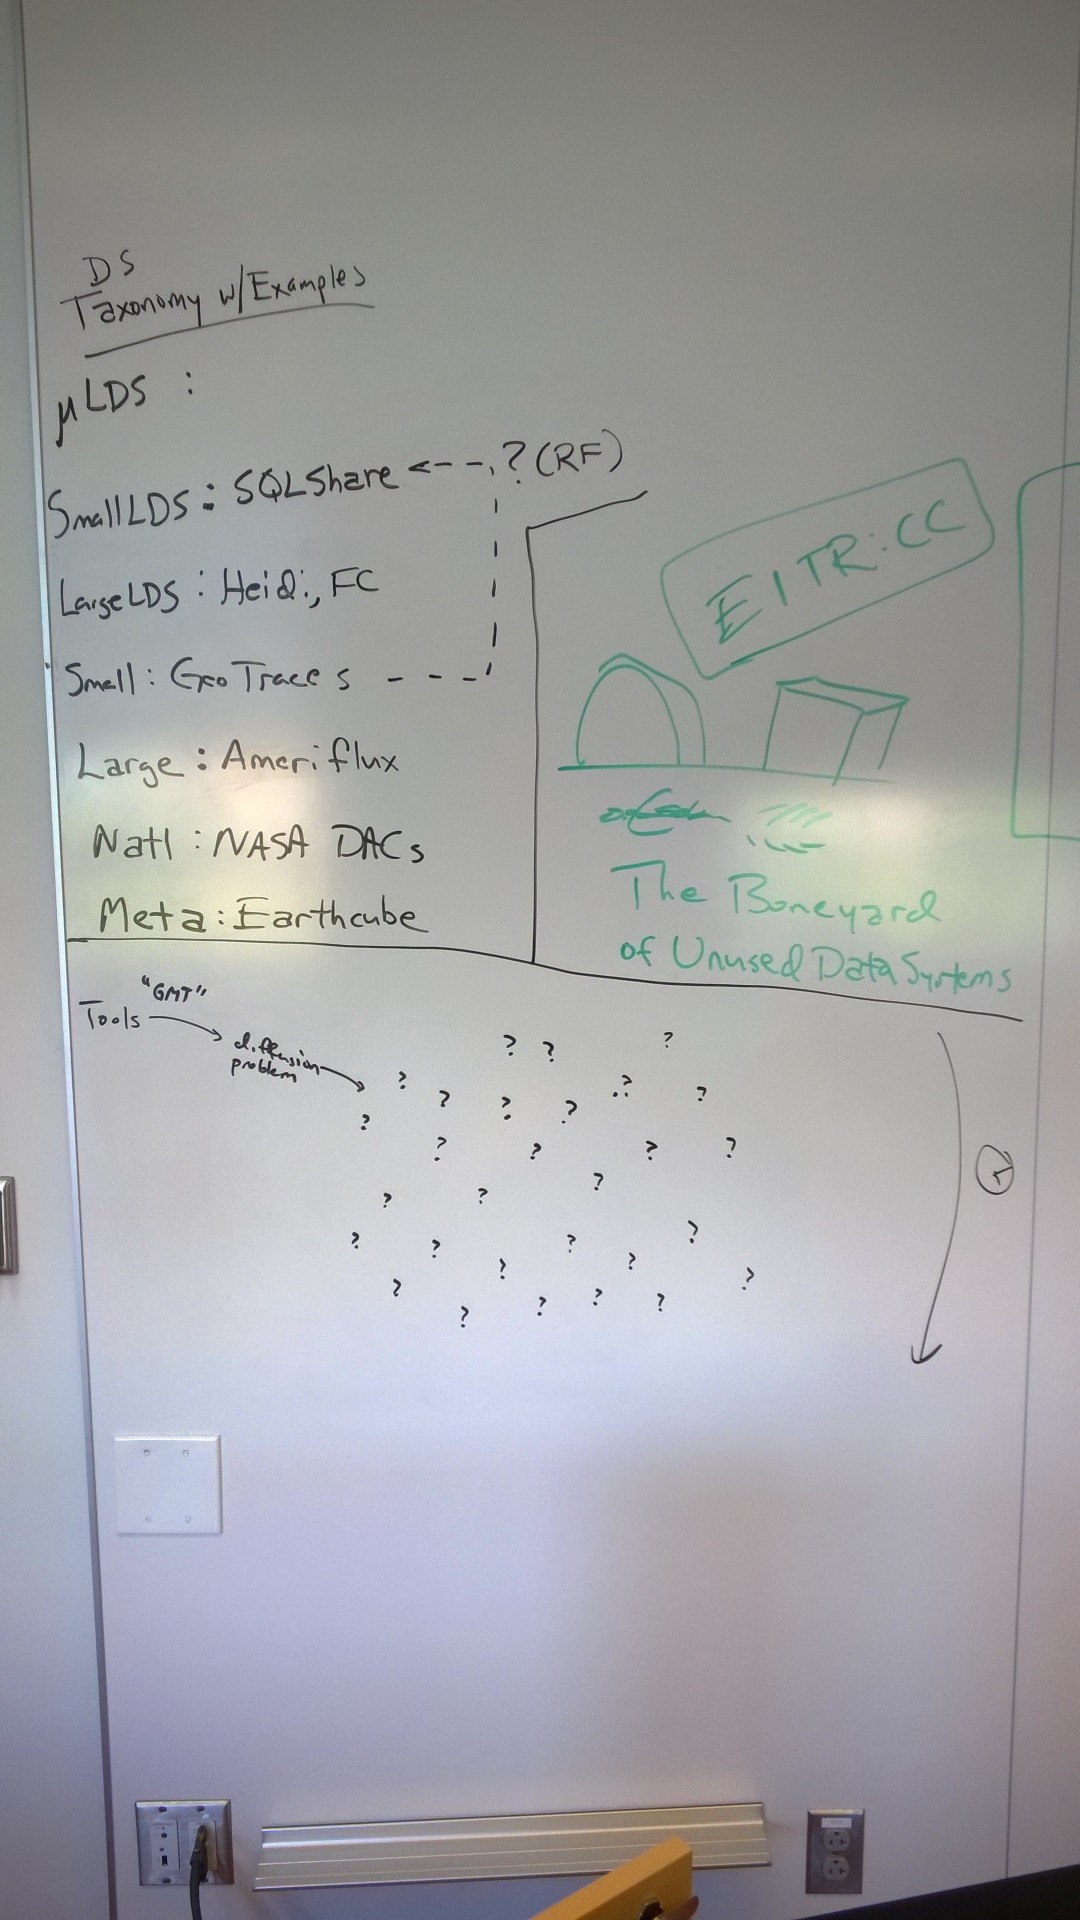 DS
Taxonomy w/Examples
μLDS :
SmallLDS : SQLShare <--- ? (RF)
LargeLDS : Heidi, FC
Small : GeoTraces - - - -
Large : Ameriflux
Natl : NASA DACs
Meta : Earthcube
EITR:CC
The Boneyard
of Unused Data Systems
"GMT"
Tools
diffusion
problem
? ? ?
? ? ? ? ? ? ?
? ? ? ? ?
? ? ?
? ? ? ? ? ? ?
? ? ? ? ? ?